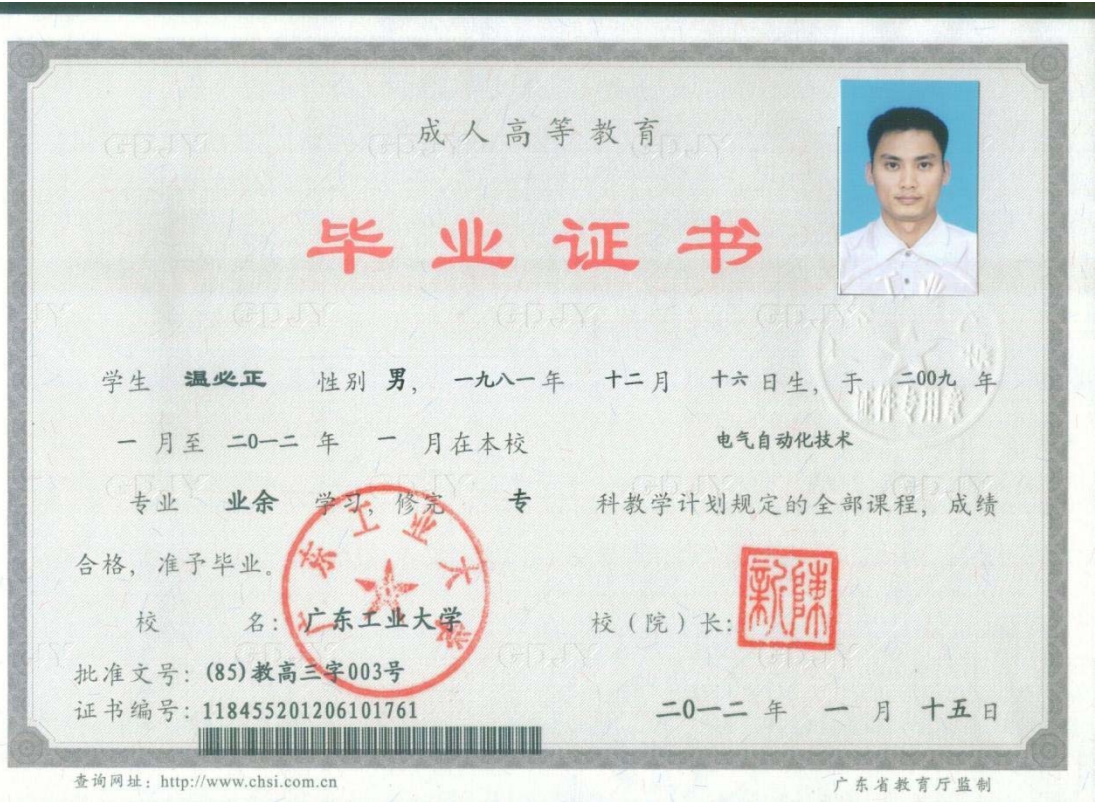 成人高等教育
毕业证书
学生 温必正 性别 男， 一九八一年 十二月 十六日生，于 二00九 年
一 月至 二0一二 年 一 月在本校 电气自动化技术
专业 业余 学习，修完 专 科教学计划规定的全部课程，成绩
合格，准予毕业。
广东工业大学
校 名：广东工业大学 校（院）长：
陈新
批准文号：(85)教高三字003号
证书编号：118455201206101761 二0一二 年 一 月 十五日
查询网址：http://www.chsi.com.cn 广东省教育厅监制
证件专用章
GDJY